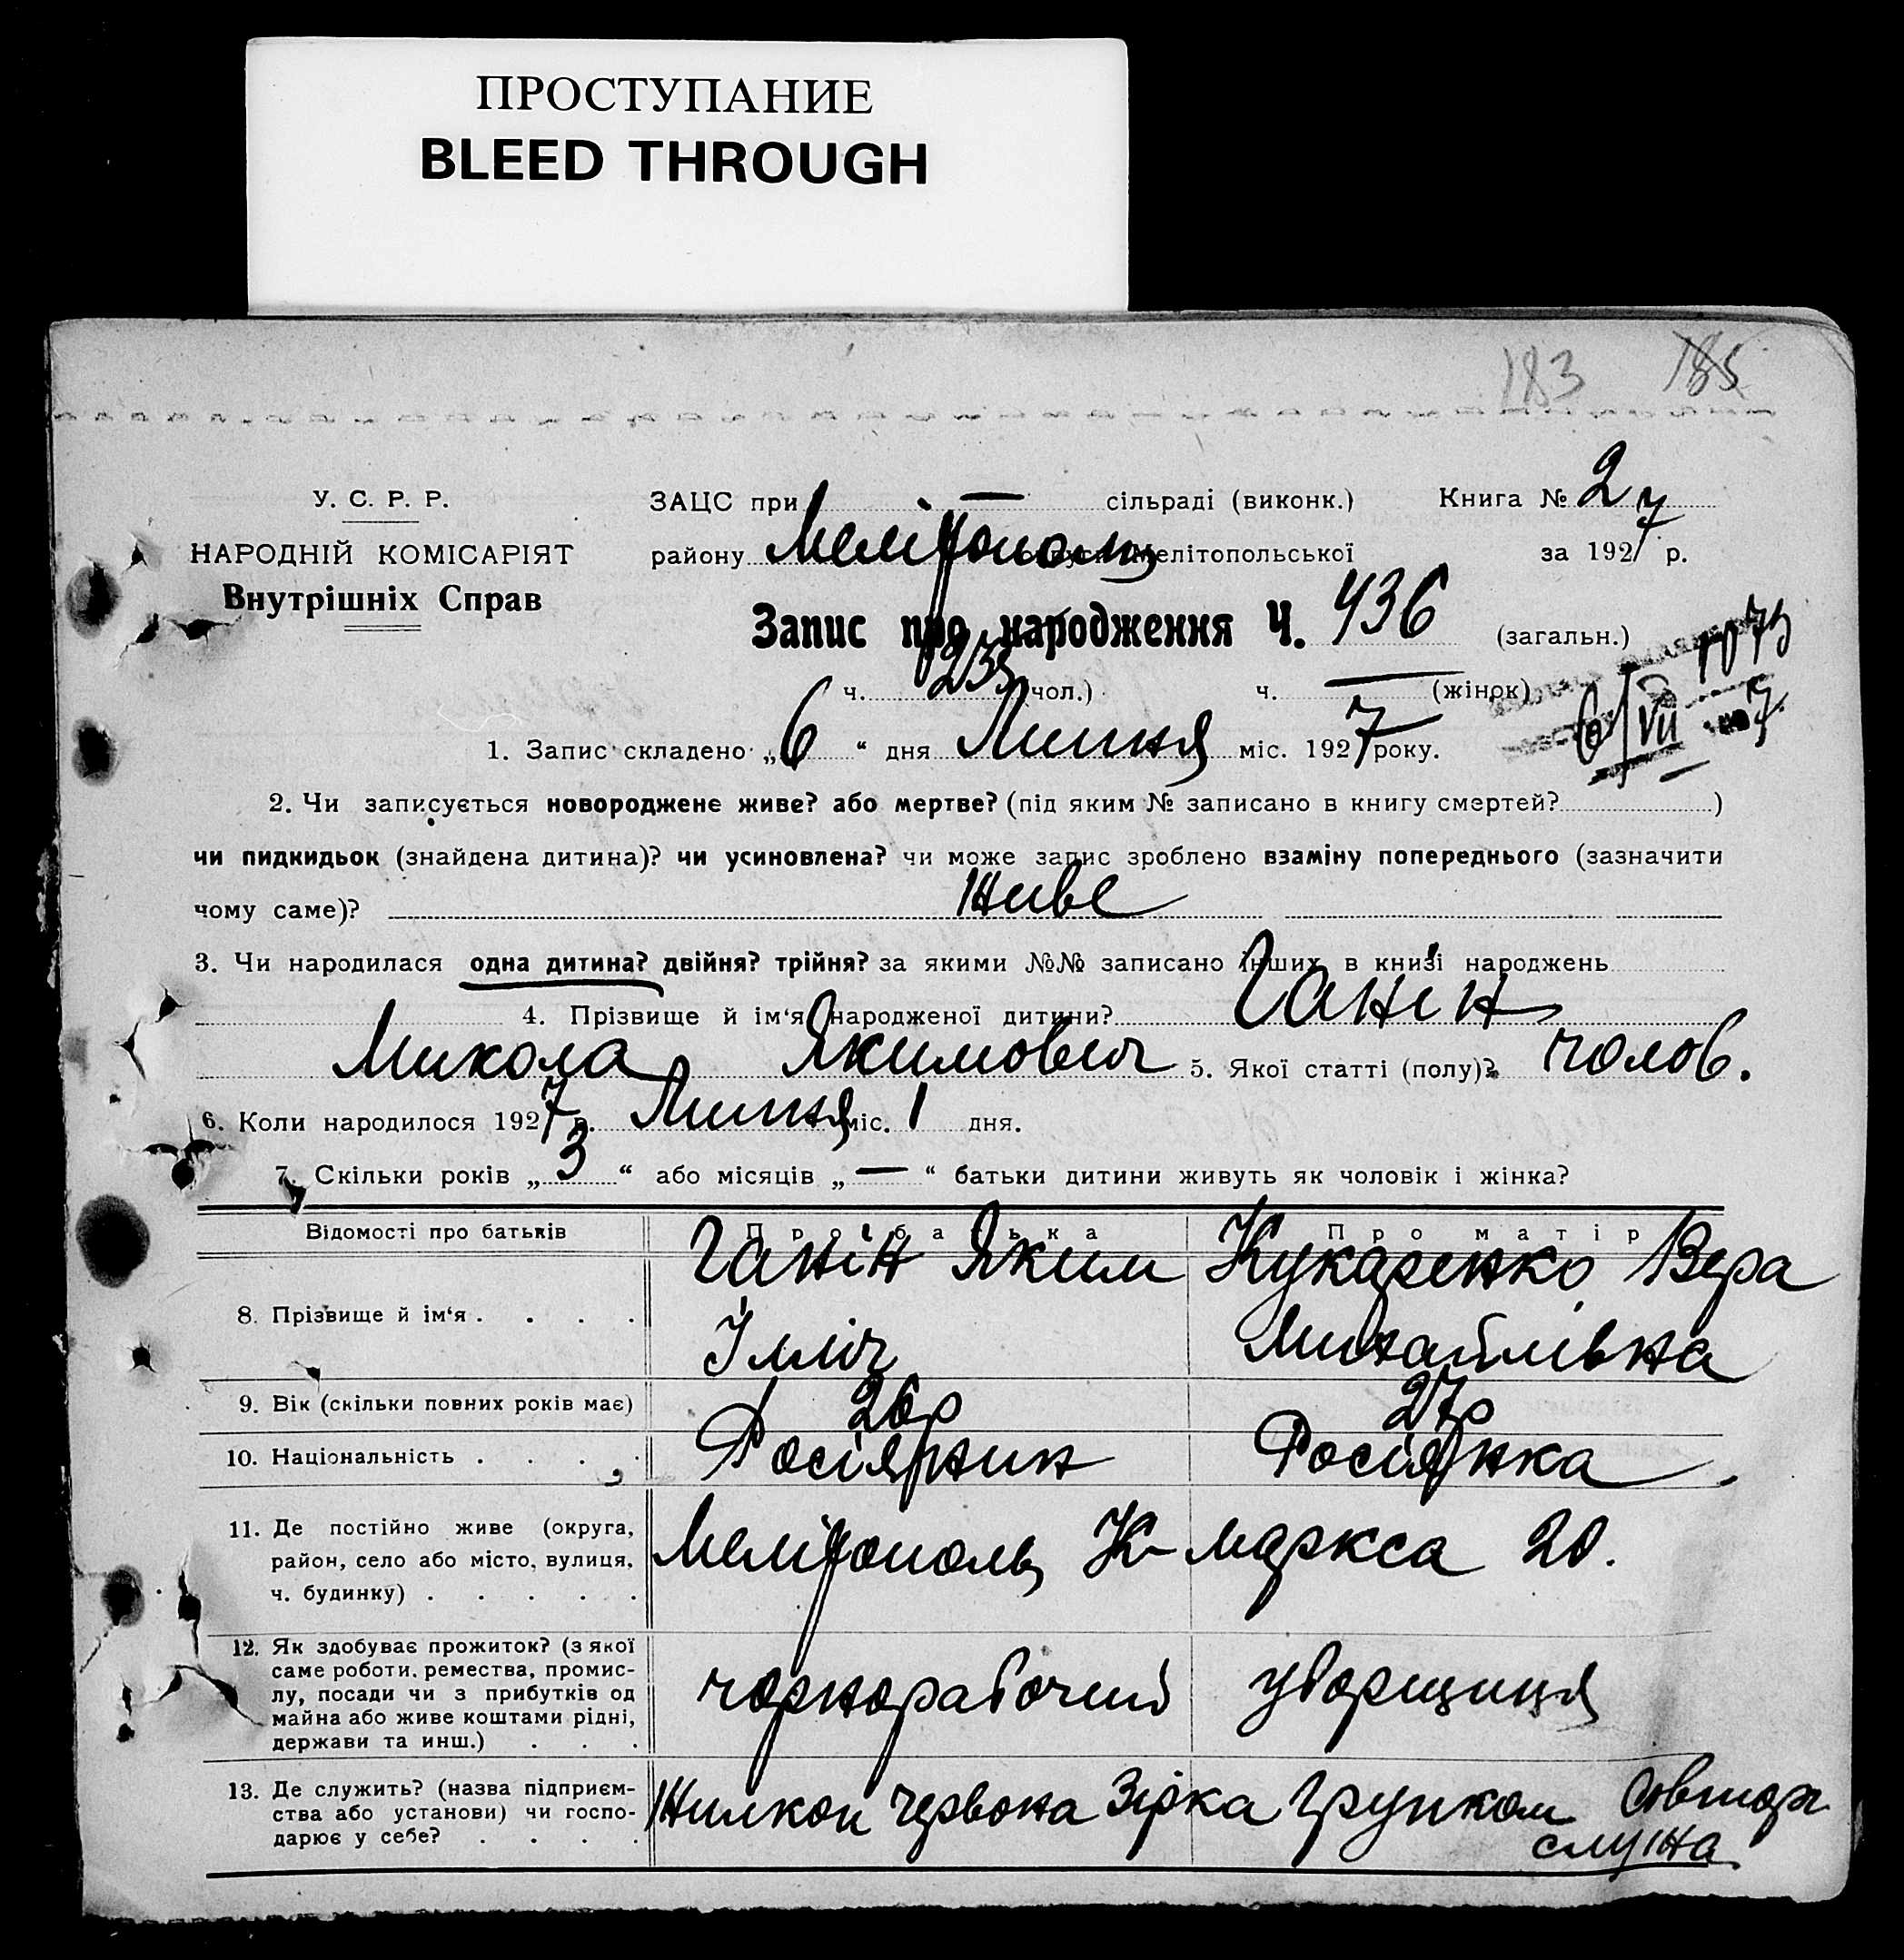 ПРОСТУПАНИЕ
BLEED THROUGH
183 185
У. С. Р. Р.
НАРОДНІЙ КОМІСАРІЯТ
Внутрішніх Справ
ЗАЦС при — сільраді (виконк.) Книга № 2
району Мелітополь округи Мелітопольської за 1927 р.
Запис про народження Ч. 436 (загальн.)
ч. 233 (чол.) ч. — (жінок)
1073
6/VII 7
1. Запис складено „6“ дня Липня міс. 1927 року.
2. Чи записується новороджене живе? або мертве? (під яким № записано в книгу смертей? )
чи пидкидьок (знайдена дитина)? чи усиновлена? чи може запис зроблено взаміну попереднього (зазначити
чому саме)? живе
3. Чи народилася одна дитина? двійня? трійня? за якими №№ записано інших в книзі народжень
4. Прізвище й ім‘я народженої дитини? Ганін
Микола Якимович 5. Якої статті (полу)? чолов.
6. Коли народилося 1927 р. Липня міс. 1 дня.
7. Скільки років „3“ або місяців „—“ батьки дитини живуть як чоловік і жінка?
Відомості про батьків Про батька Про матір
8. Прізвище й ім‘я . . . . Ганін Яким Кукаренко Вера
Ілліч Михайлівна
9. Вік (скільки повних років має) 26р 27р
10. Національність . . . . Росіянин Росіянка
11. Де постійно живе (округа,
район, село або місто, вулиця,
ч. будинку) . . . . .
Мелітополь К-Маркса 20.
12. Як здобуває прожиток? (з якої
саме роботи, ремества, промис-
лу, посади чи з прибутків од
майна або живе коштами рідні,
держави та инш.) . . .
чорнорабочий уборщиця
13. Де служить? (назва підприєм-
ства або установи) чи госпо-
дарює у себе? . . . .
Жилкоп Червона Зірка Групком Совторг
служ